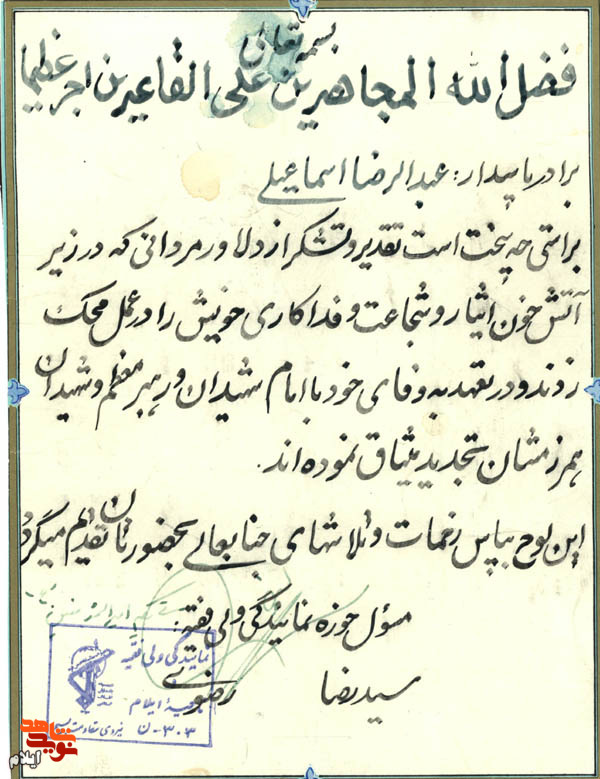 بسمه تعالی
فضل الله المجاهدین علی القاعدین اجر عظیما
برادر پاسدار: عبدالرضا اسماعیلی
براستی چه سخت است تقدیر و تشکر از دلاورمردانی که در زیر
آتش خون ایثار و شجاعت و فداکاری خویش را در عمل محک
زدند و در تعهد به وفای خود با امام شهیدان و رهبر معظم و شهیدان
همرزمشان تجدید میثاق نموده اند.
این لوح بپاس زحمات و تلاشهای جنابعالی بحضورتان تقدیم میگردد
مسؤل حوزه نمایندگی ولی فقیه:
سید رضا رضوی
نمایندگی ولی فقیه
ناحیه ایلام
ن-۳۰۳ نیروی مقاومت بسیج
نوید شاهد
ایلام